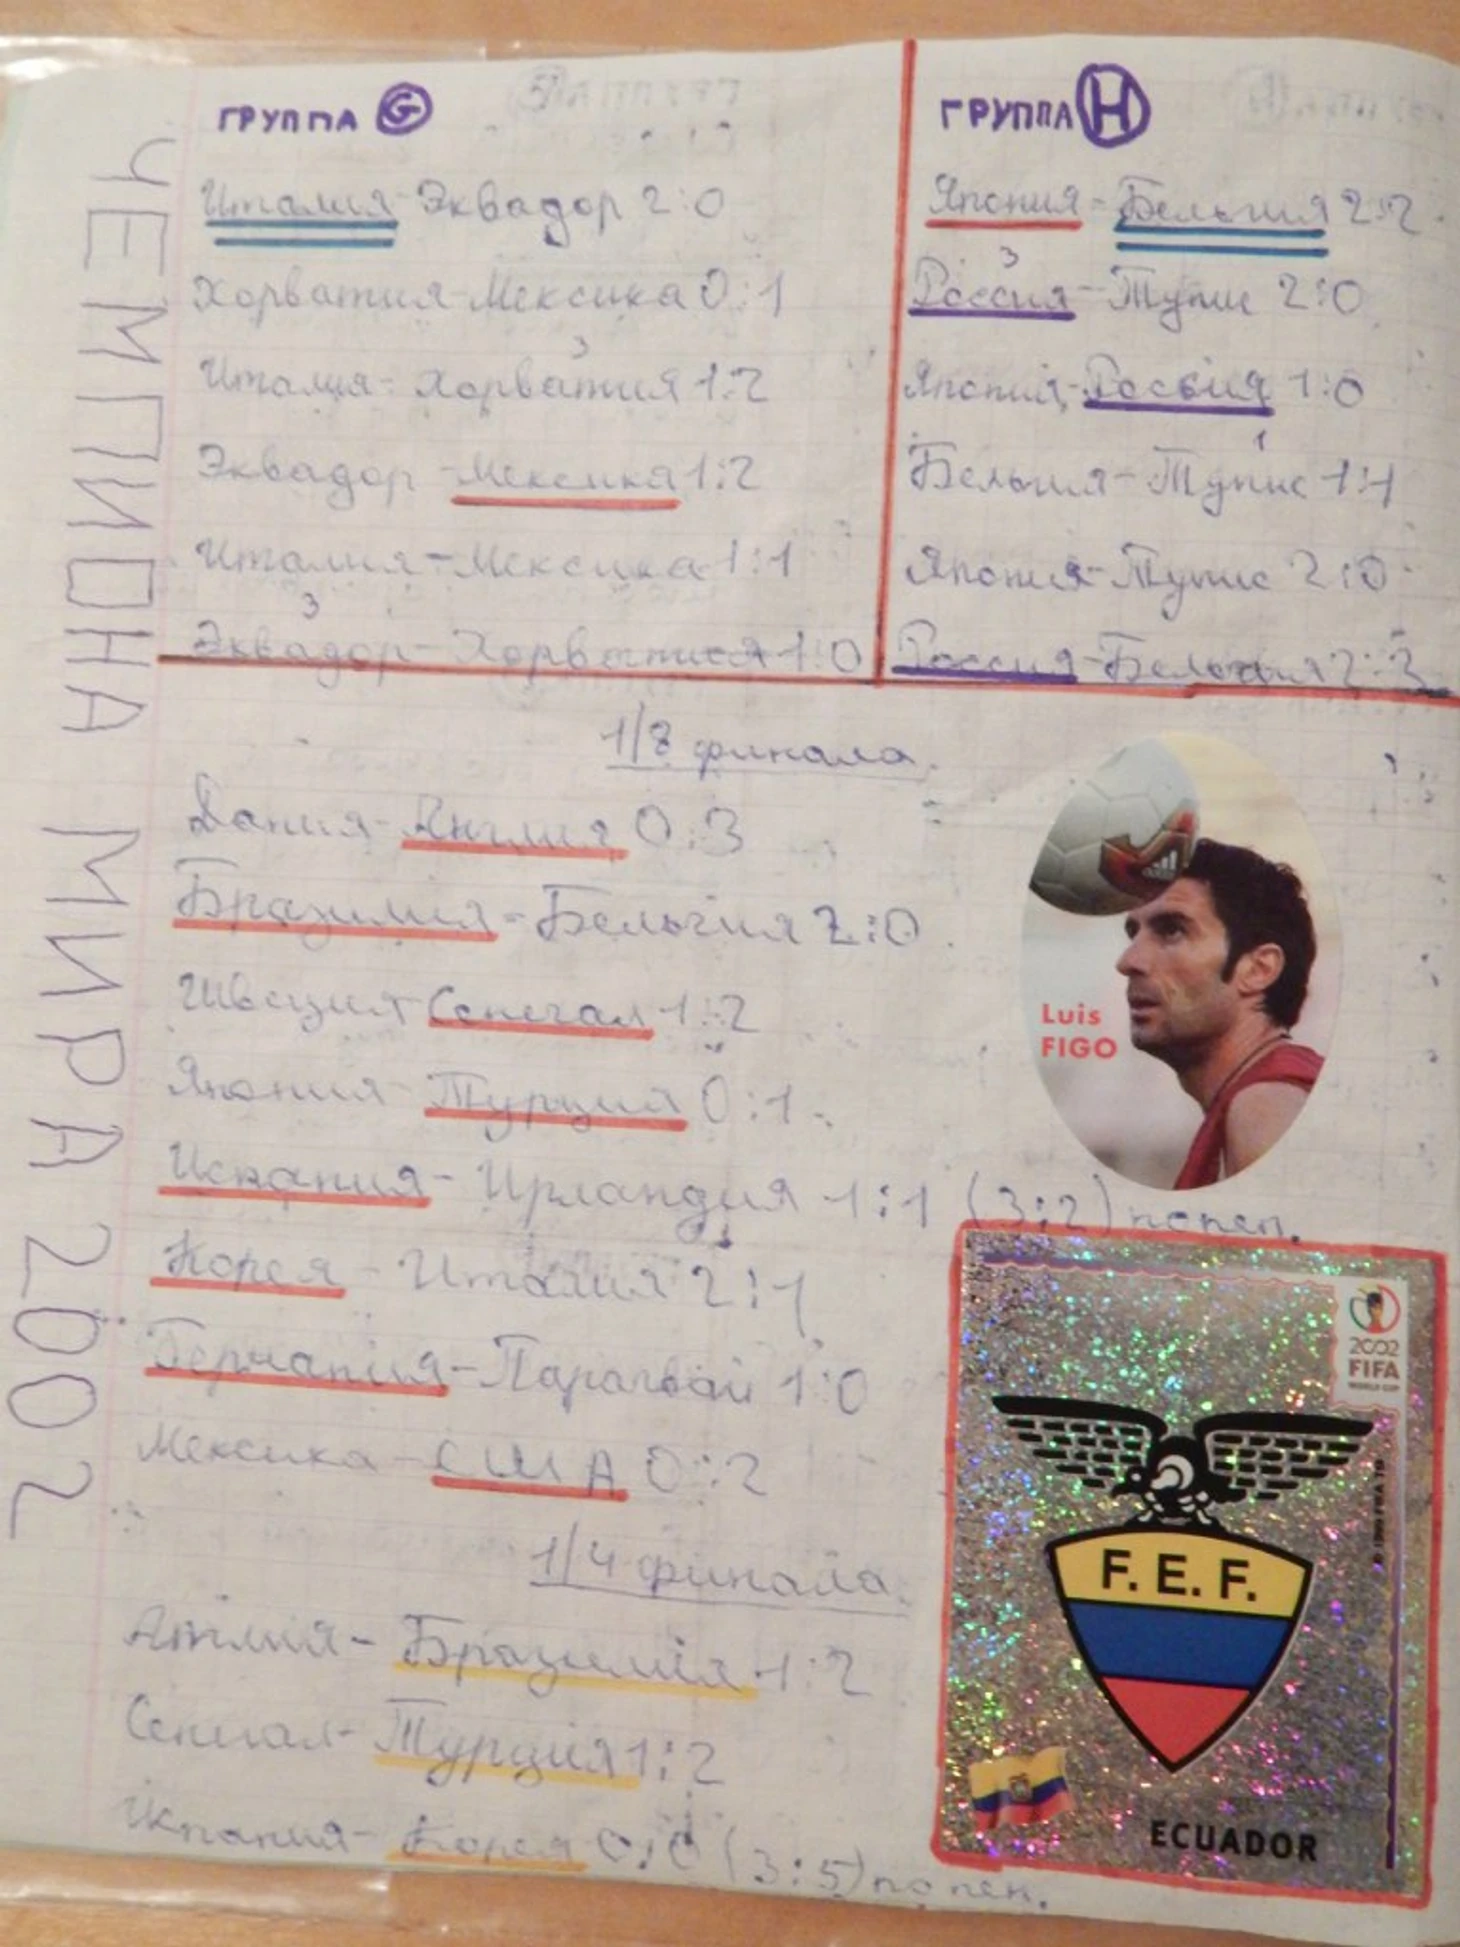 ЧЕМПИОНА МИРА 2002
ГРУППА G
Италия-Эквадор 2:0
Хорватия-Мексика 0:1
3
Италия-Хорватия 1:2
Эквадор-Мексика 1:2
Италия-Мексика 1:1
3
Эквадор-Хорватия 1:0
ГРУППА H
Япония-Бельгия 2:2
3
Россия-Тунис 2:0
Япония-Россия 1:0
1
Бельгия-Тунис 1:1
Япония-Тунис 2:0
Россия-Бельгия 2:3
1/8 финала.
Дания-Англия 0:3
Бразилия-Бельгия 2:0
Швеция-Сенегал 1:2
Япония-Турция 0:1.
Испания-Ирландия 1:1 (3:2) по пен.
Корея-Италия 2:1
Германия-Парагвай 1:0
Мексика-США 0:2
1/4 финала.
Англия-Бразилия 1:2
Сенегал-Турция 1:2
Испания-Корея 0:0 (3:5) по пен.
Luis
FIGO
2002
FIFA
WORLD CUP
F.E.F.
ECUADOR